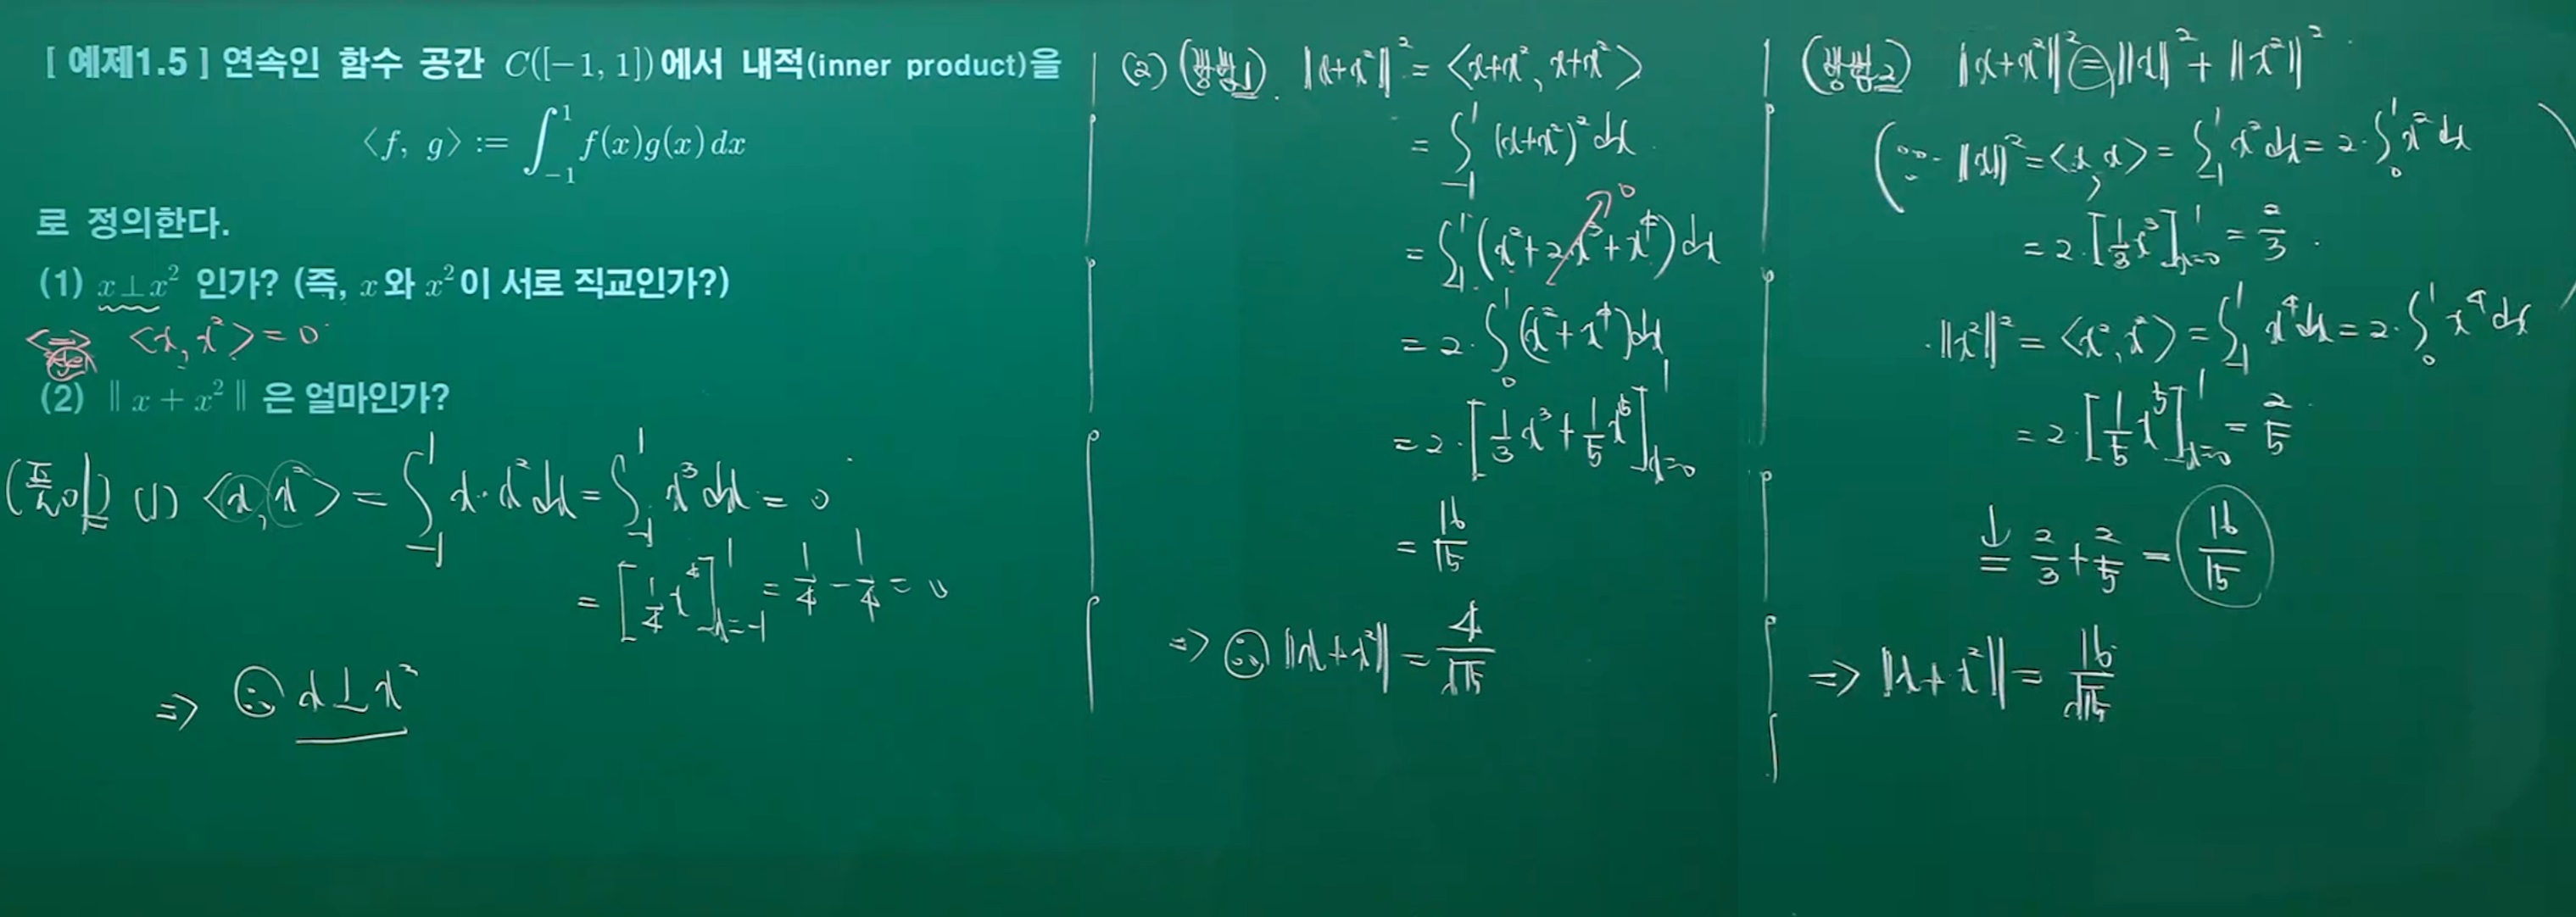 [ 예제1.5 ] 연속인 함수 공간 C([-1, 1])에서 내적(inner product)을
⟨f, g⟩ := ∫_{-1}^{1} f(x)g(x) dx
로 정의한다.
(1) x⊥x² 인가? (즉, x와 x²이 서로 직교인가?)
⟺ def ⟨x, x²⟩ = 0
(2) ‖ x + x² ‖ 은 얼마인가?
(풀이) (1) ⟨x, x²⟩ = ∫_{-1}^{1} x·x² dx = ∫_{-1}^{1} x³ dx = 0
= [1/4 x⁴]_{x=-1}^{1} = 1/4 - 1/4 = 0
⇒ ∴ x⊥x²
(2) (방법1) ‖x+x²‖² = ⟨x+x², x+x²⟩
= ∫_{-1}^{1} (x+x²)² dx
= ∫_{-1}^{1} (x²+2x³+x⁴) dx → 0
= 2·∫_{0}^{1} (x²+x⁴) dx
= 2·[1/3 x³ + 1/5 x⁵]_{x=0}^{1}
= 16/15
⇒ ∴ ‖x+x²‖ = 4/√15
(방법2) ‖x+x²‖² = ‖x‖² + ‖x²‖²
(∵ · ‖x‖² = ⟨x, x⟩ = ∫_{-1}^{1} x² dx = 2·∫_{0}^{1} x² dx
= 2·[1/3 x³]_{x=0}^{1} = 2/3.
· ‖x²‖² = ⟨x², x²⟩ = ∫_{-1}^{1} x⁴ dx = 2·∫_{0}^{1} x⁴ dx )
= 2·[1/5 x⁵]_{x=0}^{1} = 2/5
↓ = 2/3 + 2/5 = 16/15
⇒ ‖x+x²‖ = 16/√15